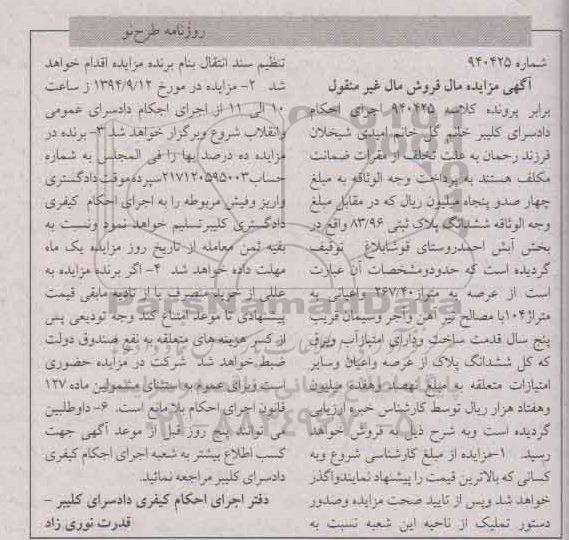 روزنامه طرح‌نو
شماره ۹۴۰۴۲۵
آگهی مزایده مال فروش مال غیر منقول
برابر پرونده کلاسه ۹۴۰۴۲۵ اجرای احکام
دادسرای کلیبر خانم گل خانم امیدی شیخلان
فرزند رحمان به علت تخلف از مقررات ضمانت
مکلف هستند به پرداخت وجه الوثاقه به مبلغ
چهار صدو پنجاه میلیون ریال که در مقابل مبلغ
وجه الوثاقه ششدانگ پلاک ثبتی ۸۳/۹۶ واقع در
بخش آبش احمدروستای قوشابلاغ توقیف
گردیده است که حدودومشخصات آن عبارت
است از عرصه به متراژ۲۶۷/۴۰ واعیانی به
متراژ۱۰۴با مصالح تیر آهن وآجر وسیمان قریب
پنج سال قدمت ساخت ودارای امتیازآب وبرق
که کل ششدانگ پلاک از عرصه واعیان وسایر
امتیازات متعلقه به مبلغ نهصد وهفده میلیون
وهفتاد هزار ریال توسط کارشناس خبره ارزیابی
گردیده است وبه شرح ذیل به فروش خواهد
رسید. ۱-مزایده از مبلغ کارشناسی شروع وبه
کسانی که بالاترین قیمت را پیشنهاد نمایندواگذر
خواهد شد وپس از تایید صحت مزایده وصدور
دستور تملیک از ناحیه این شعبه نسبت به
تنظیم سند انتقال بنام برنده مزایده اقدام خواهد
شد ۲- مزایده در مورخ ۱۳۹۴/۹/۱۲ ز ساعت
۱۰ الی ۱۱ از اجرای احکام دادسرای عمومی
وانقلاب شروع وبرگزار خواهد شد ۳- برنده در
مزایده ده درصد بها را فی المجلس به شماره
حساب۲۱۷۱۲۰۵۹۵۰۰۳سپرده‌موقت‌دادگستری
واریز وفیش مربوطه را به اجرای احکام کیفری
دادگستری کلیبرتسلیم خواهد نمود ونسبت به
بقیه ثمن معامله از تاریخ روز مزایده یک ماه
مهلت داده خواهد شد ۴- اگر برنده مزایده به
عللی از خرید منصرف یا از تادیه مابقی قیمت
پیشنهادی تا موعد امتناع کند وجه تودیعی پس
از کسر هزینه های متعلقه به نفع صندوق دولت
ضبط خواهد شد شرکت در مزایده حضوری
است وبرای عموم به استثنای مشمولین ماده ۱۲۷
قانون اجرای احکام بلامانع است. ۶- داوطلبین
می توانند پنج روز قبل از موعد آگهی جهت
کسب اطلاع بیشتر به شعبه اجرای احکام کیفری
دادسرای کلیبر مراجعه نمائید.
دفتر اجرای احکام کیفری دادسرای کلیبر -
قدرت نوری زاد
ParsNamadData